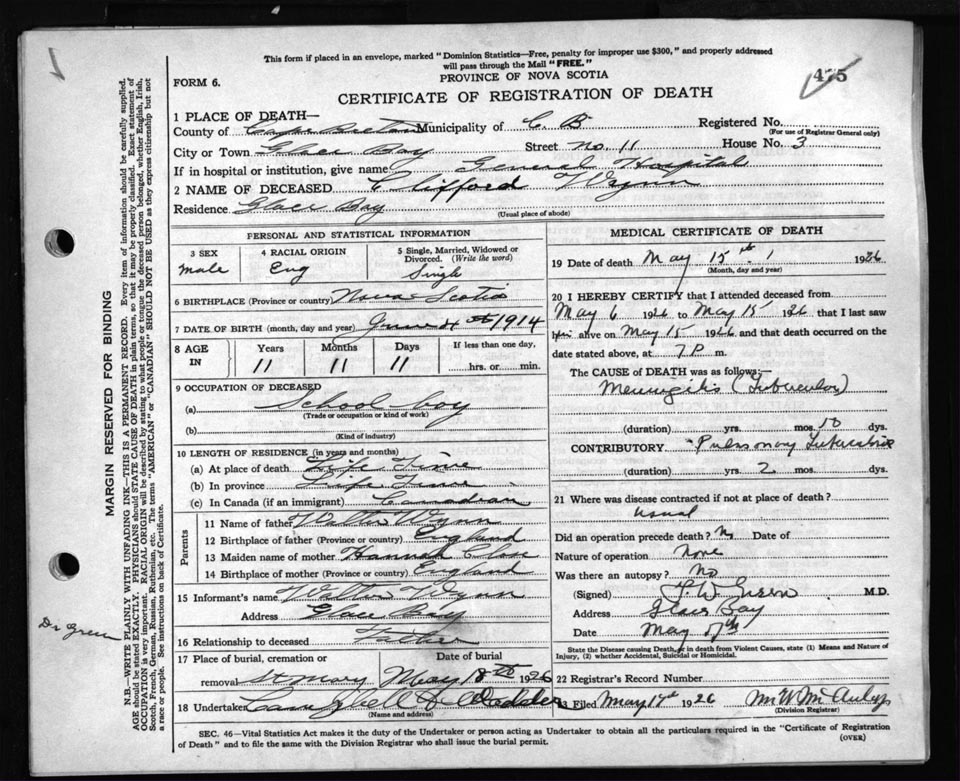 This form if placed in an envelope, marked "Dominion Statistics—Free, penalty for improper use $300," and properly addressed
will pass through the Mail "FREE."
FORM 6.
PROVINCE OF NOVA SCOTIA
475
CERTIFICATE OF REGISTRATION OF DEATH
1 PLACE OF DEATH—
County of Cape Breton Municipality of C B Registered No.
(For use of Registrar General only)
City or Town Glace Bay Street No. 11 House No. 3
If in hospital or institution, give name General Hospital
2 NAME OF DECEASED Clifford Wynn
Residence Glace Bay
(Usual place of abode)
PERSONAL AND STATISTICAL INFORMATION
3 SEX 4 RACIAL ORIGIN 5 Single, Married, Widowed or Divorced. (Write the word)
male Eng Single
6 BIRTHPLACE (Province or country) Nova Scotia
7 DATE OF BIRTH (month, day and year) June 4th 1914
8 AGE IN Years Months Days If less than one day,
11 11 11 hrs. or min.
9 OCCUPATION OF DECEASED
(a) School boy
(Trade or occupation or kind of work)
(b)
(Kind of industry)
10 LENGTH OF RESIDENCE (in years and months)
(a) At place of death Life Time
(b) In province Life Time
(c) In Canada (if an immigrant) Canadian
Parents
11 Name of father Walter Wynn
12 Birthplace of father (Province or country) England
13 Maiden name of mother Hannah
14 Birthplace of mother (Province or country) England
15 Informant's name Walter Wynn
Address Glace Bay
16 Relationship to deceased Father
17 Place of burial, cremation or removal St Mary Date of burial May 18th 1926
18 Undertaker Campbell &
(Name and address)
MEDICAL CERTIFICATE OF DEATH
19 Date of death May 15th 1926
(Month, day and year)
20 I HEREBY CERTIFY that I attended deceased from
May 6 1926 to May 15 1926 that I last saw
him alive on May 15 1926 and that death occurred on
date stated above, at 7 P m.
The CAUSE of DEATH was as follows:—
Meningitis (Tubercular)
(duration) yrs. mos. 10 dys.
CONTRIBUTORY Pulmonary Tuberculosis
(duration) yrs. 2 mos. dys.
21 Where was disease contracted if not at place of death?
usual
Did an operation precede death? No Date of
Nature of operation None
Was there an autopsy? No
(Signed) M.D.
Address Glace Bay
Date May 17th
State the Disease causing Death, or in death from Violent Causes, state (1) Means and Nature of
Injury, (2) whether Accidental, Suicidal or Homicidal.
22 Registrar's Record Number
23 Filed May 17th 1926
(Division Registrar)
SEC. 46—Vital Statistics Act makes it the duty of the Undertaker or person acting as Undertaker to obtain all the particulars required in the "Certificate of Registration
of Death" and to file the same with the Division Registrar who shall issue the burial permit.
(OVER)
MARGIN RESERVED FOR BINDING
N.B.—WRITE PLAINLY WITH UNFADING INK—THIS IS A PERMANENT RECORD. Every item of information should be carefully supplied.
AGE should be stated EXACTLY. PHYSICIANS should STATE CAUSE OF DEATH in plain terms, so that it may be properly classified. Exact statement of
OCCUPATION is very important. RACIAL ORIGIN will be described by stating to what people or tongue the deceased person belonged, whether English, Irish,
Scotch, French, German, Russian, Ruthenian, etc. The terms "AMERICAN" or "CANADIAN" SHOULD NOT BE USED as they express citizenship but not
a race or people. See instructions on back of Certificate.
Dr Green